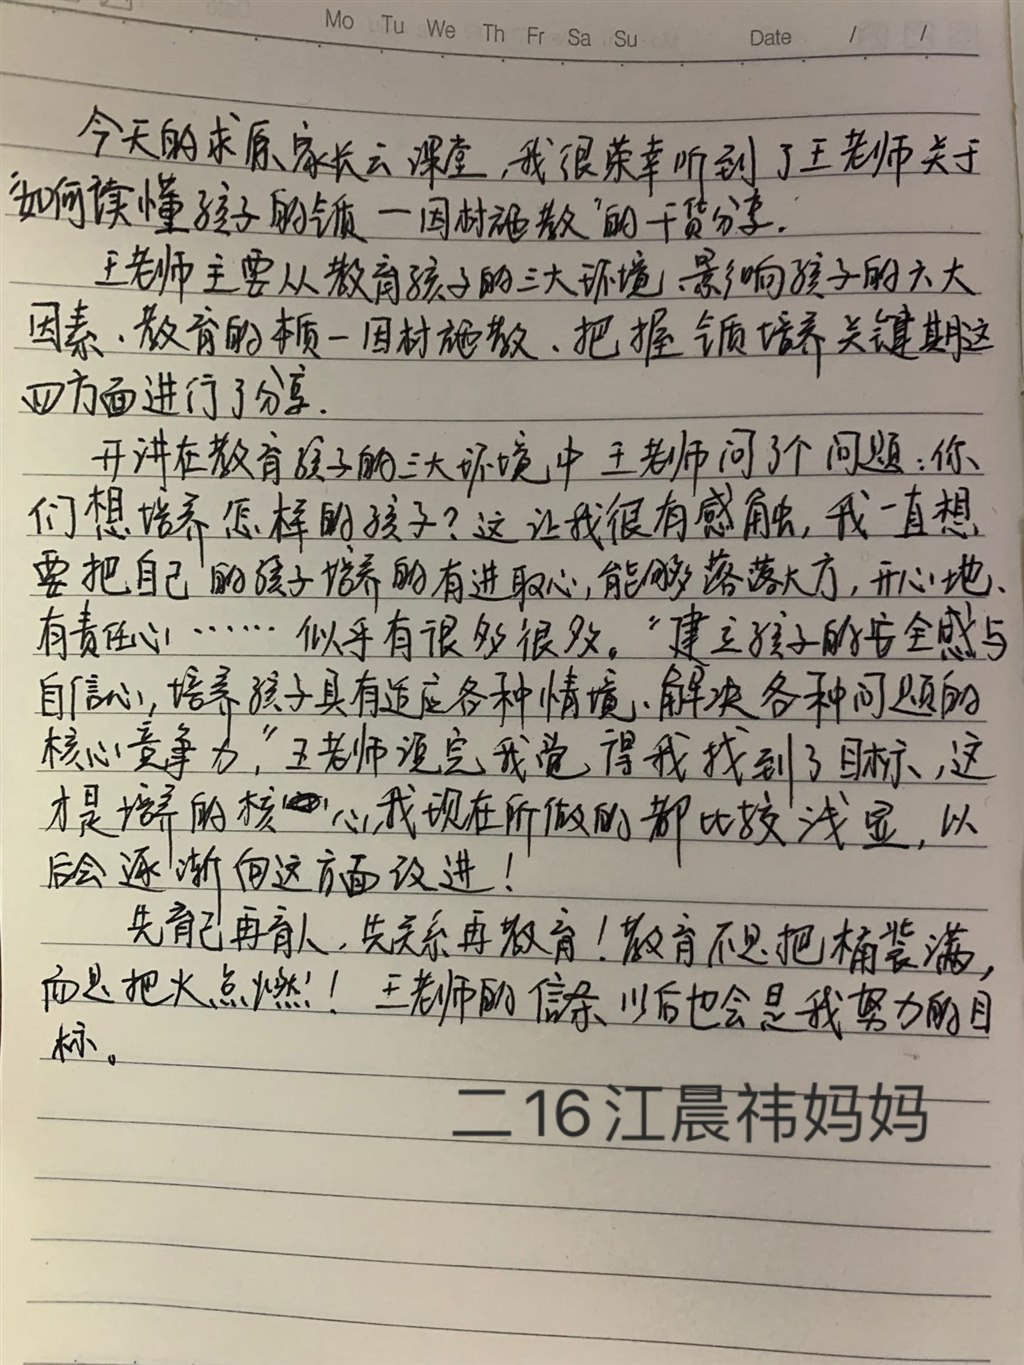 Mo Tu We Th Fr Sa Su Date / /
今天的求原家长云课堂,我很荣幸听到了王老师关于
“如何读懂孩子的气质一因材施教”的干货分享.
王老师主要从教育孩子的三大环境、影响孩子的六大
因素、教育的本质一因材施教、把握气质培养关键期这
四方面进行了分享.
开讲在教育孩子的三大环境中王老师问了个问题:你
们想培养怎样的孩子?这让我很有感触,我一直想
要把自己的孩子培养的有进取心,能够落落大方,开心地、
有责任心……似乎有很多很多。“建立孩子的安全感与
自信心,培养孩子具有适应各种情境、解决各种问题的
核心竞争力,”王老师说完我觉得我找到了目标,这
才是培养的核心,我现在所做的都比较浅显,以
后会逐渐向这方面改进!
先育己再育人,先关系再教育!教育不是把桶装满,
而是把火点燃!王老师的信条以后也会是我努力的目
标。
二16江晨祎妈妈